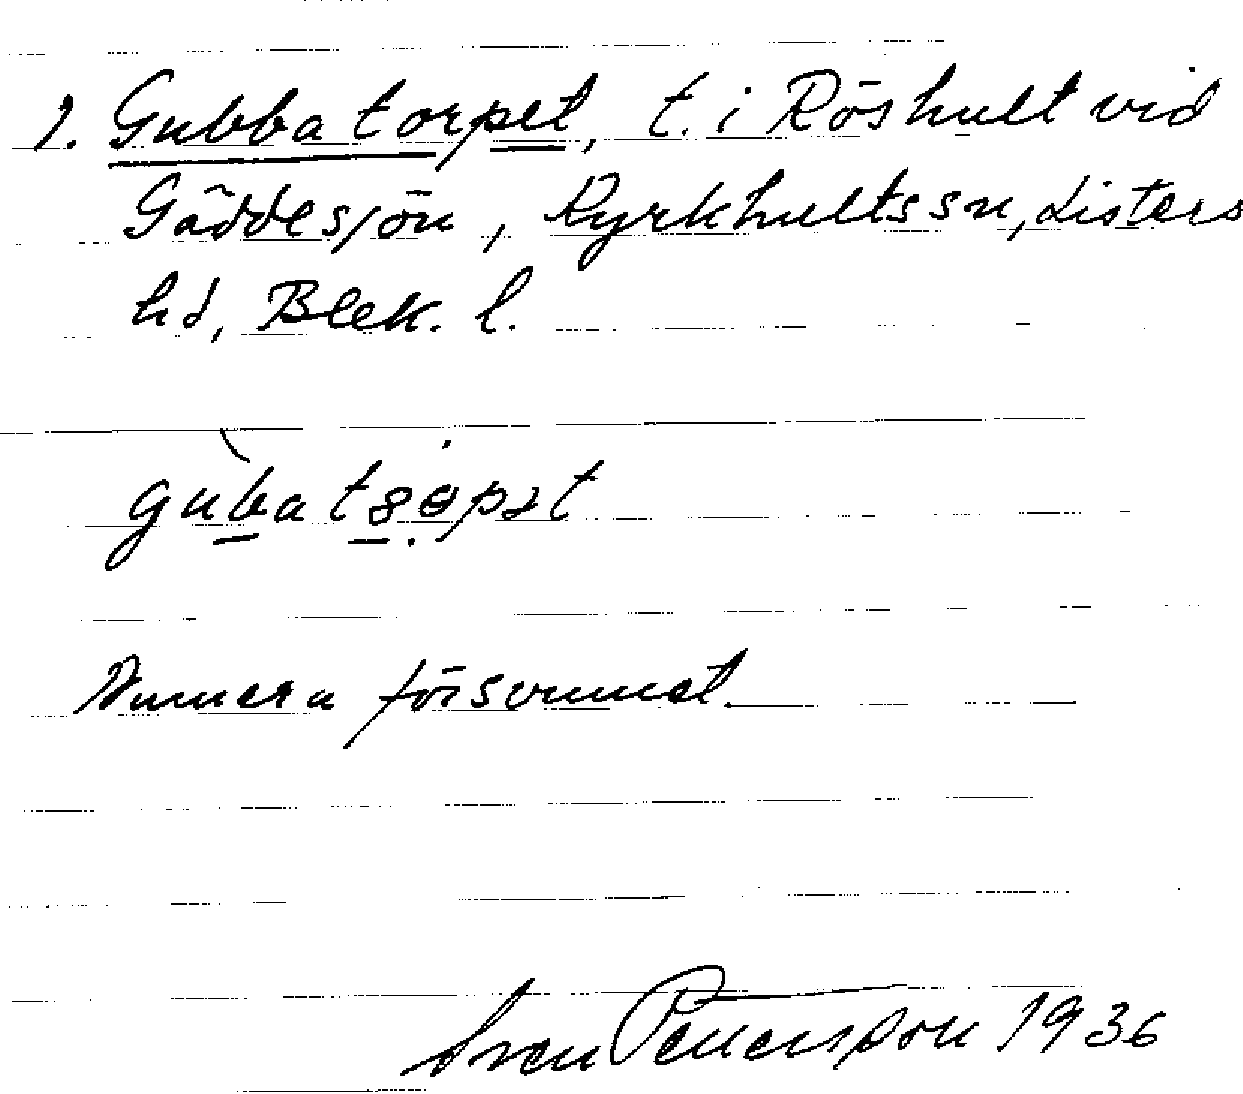 1. Gubbatorpet, t. i Röshult vid
Gäddesjön, Kyrkhults sn, Listers
hd, Blek. l.
Numera försvunnet.
Sven Pettersson 1936